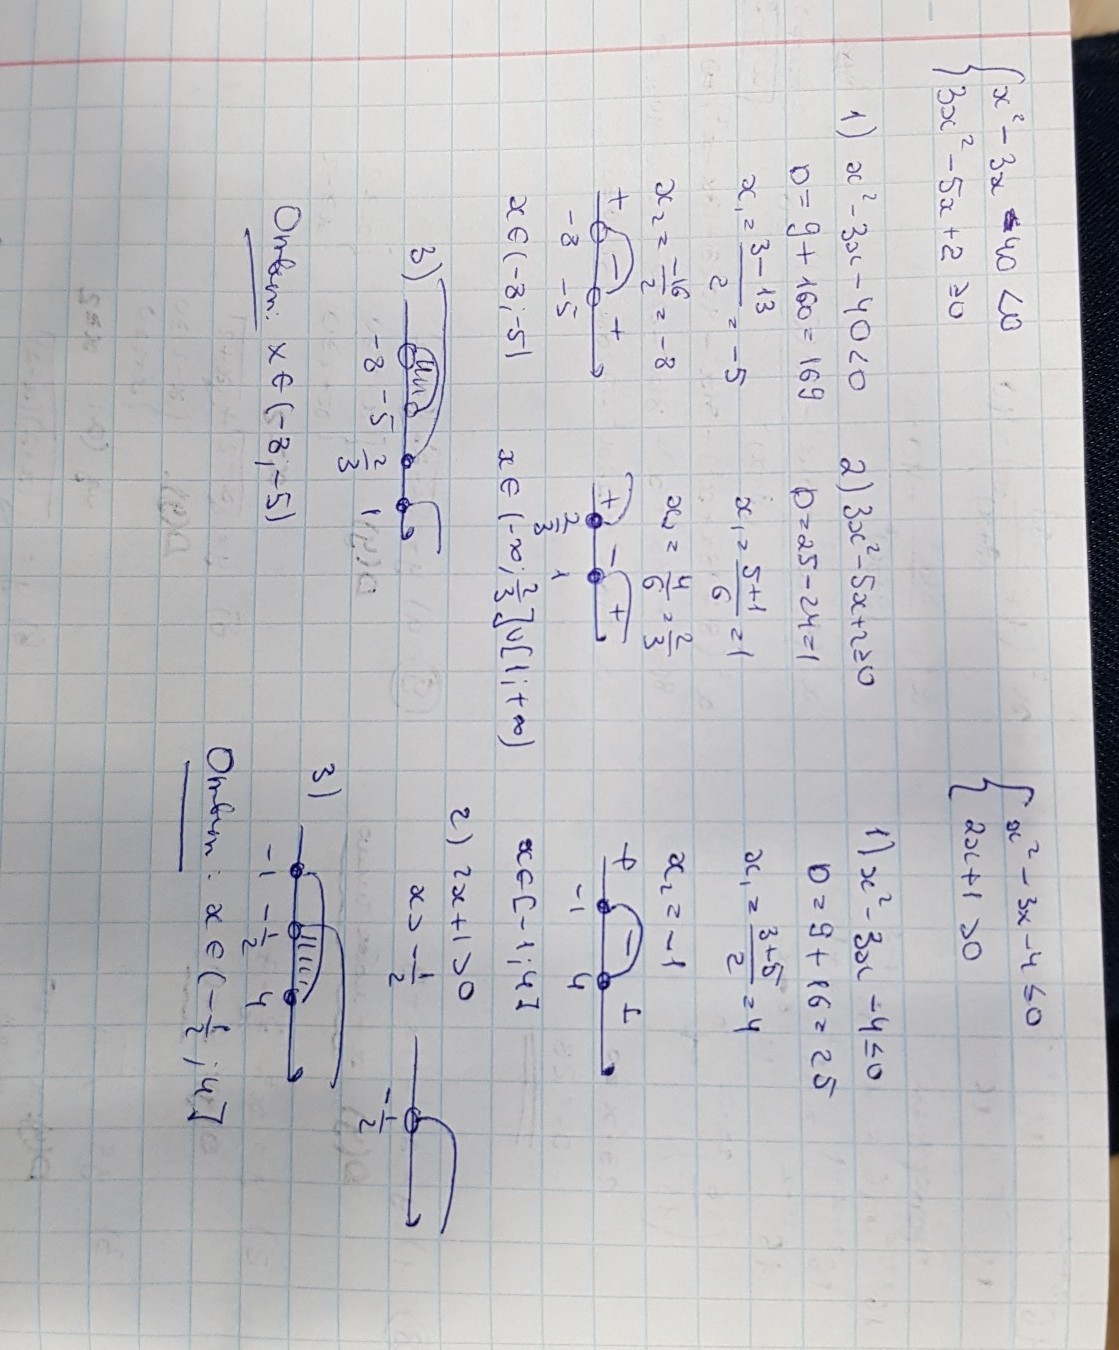 { x² - 3x - 40 < 0
{ 3x² - 5x + 2 ≥ 0
1) x² - 3x - 40 < 0
D = 9 + 160 = 169
x₁ = (3 - 13)/2 = -5
x₂ = -16/2 = -8
+ - +
-8 -5
x ∈ (-8; -5)
2) 3x² - 5x + 2 ≥ 0
D = 25 - 24 = 1
x₁ = (5 + 1)/6 = 1
x₂ = 4/6 = 2/3
+ - +
2/3 1
x ∈ (-∞; 2/3] ∪ [1; +∞)
3)
-8 -5 2/3 1
Ответ: x ∈ (-8; -5)
{ x² - 3x - 4 ≤ 0
{ 2x + 1 > 0
1) x² - 3x - 4 ≤ 0
D = 9 + 16 = 25
x₁ = (3 + 5)/2 = 4
x₂ = -1
+ - +
-1 4
x ∈ [-1; 4]
2) 2x + 1 > 0
x > -1/2
-1/2
3)
-1 -1/2 4
Ответ: x ∈ (-1/2; 4]